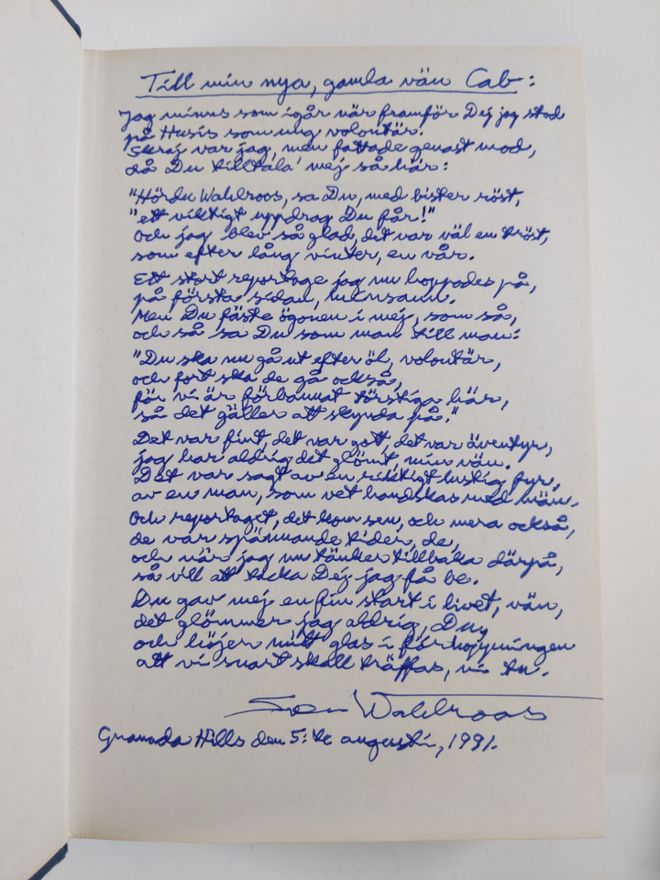 Till min nya, gamla vän Cab:
Jag minns som igår när framför Dej jag stod
på Husis som ung volontär.
Skraj var jag, men fattade genast mod,
då Du tilltala' mej så här:
"Hördu Wahlroos, sa Du, med bister röst,
"ett viktigt uppdrag Du får!"
Och jag blev så glad, det var väl en tröst,
som efter lång vinter, en vår.
Ett stort reportage jag nu hoppades på,
på första sidan, minsann.
Men Du fäste ögonen i mej, som så,
och så sa Du som man till man:
"Du ska nu gå ut efter öl, volontär,
och fort ska de gå också,
för vi är förbannat törstiga här,
så det gäller att skynda på."
Det var fint, det var gott, det var äventyr,
jag har aldrig det glömt, min vän.
Det var sagt av en riktigt lustig fyr,
av en man, som vet handskas med män.
Och reportaget, det kom sen, och mera också,
de var spännande tider, de,
och när jag nu tänker tillbaka därpå,
så vill att tacka Dej jag få be.
Du gav mej en fin start i livet, vän,
det glömmer jag aldrig, Du,
och höjer mitt glas i förhoppningen
att vi snart skall träffas, vi tu.
Sven Wahlroos
Granada Hills den 5:te augusti, 1991.